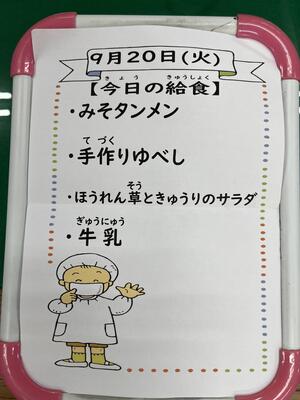 9月20日(火)
きょう きゅうしょく
【今日の給食】
・みそタンメン
てづく
・手作りゆべし
そう
・ほうれん草ときゅうりのサラダ
ぎゅうにゅう
・牛乳